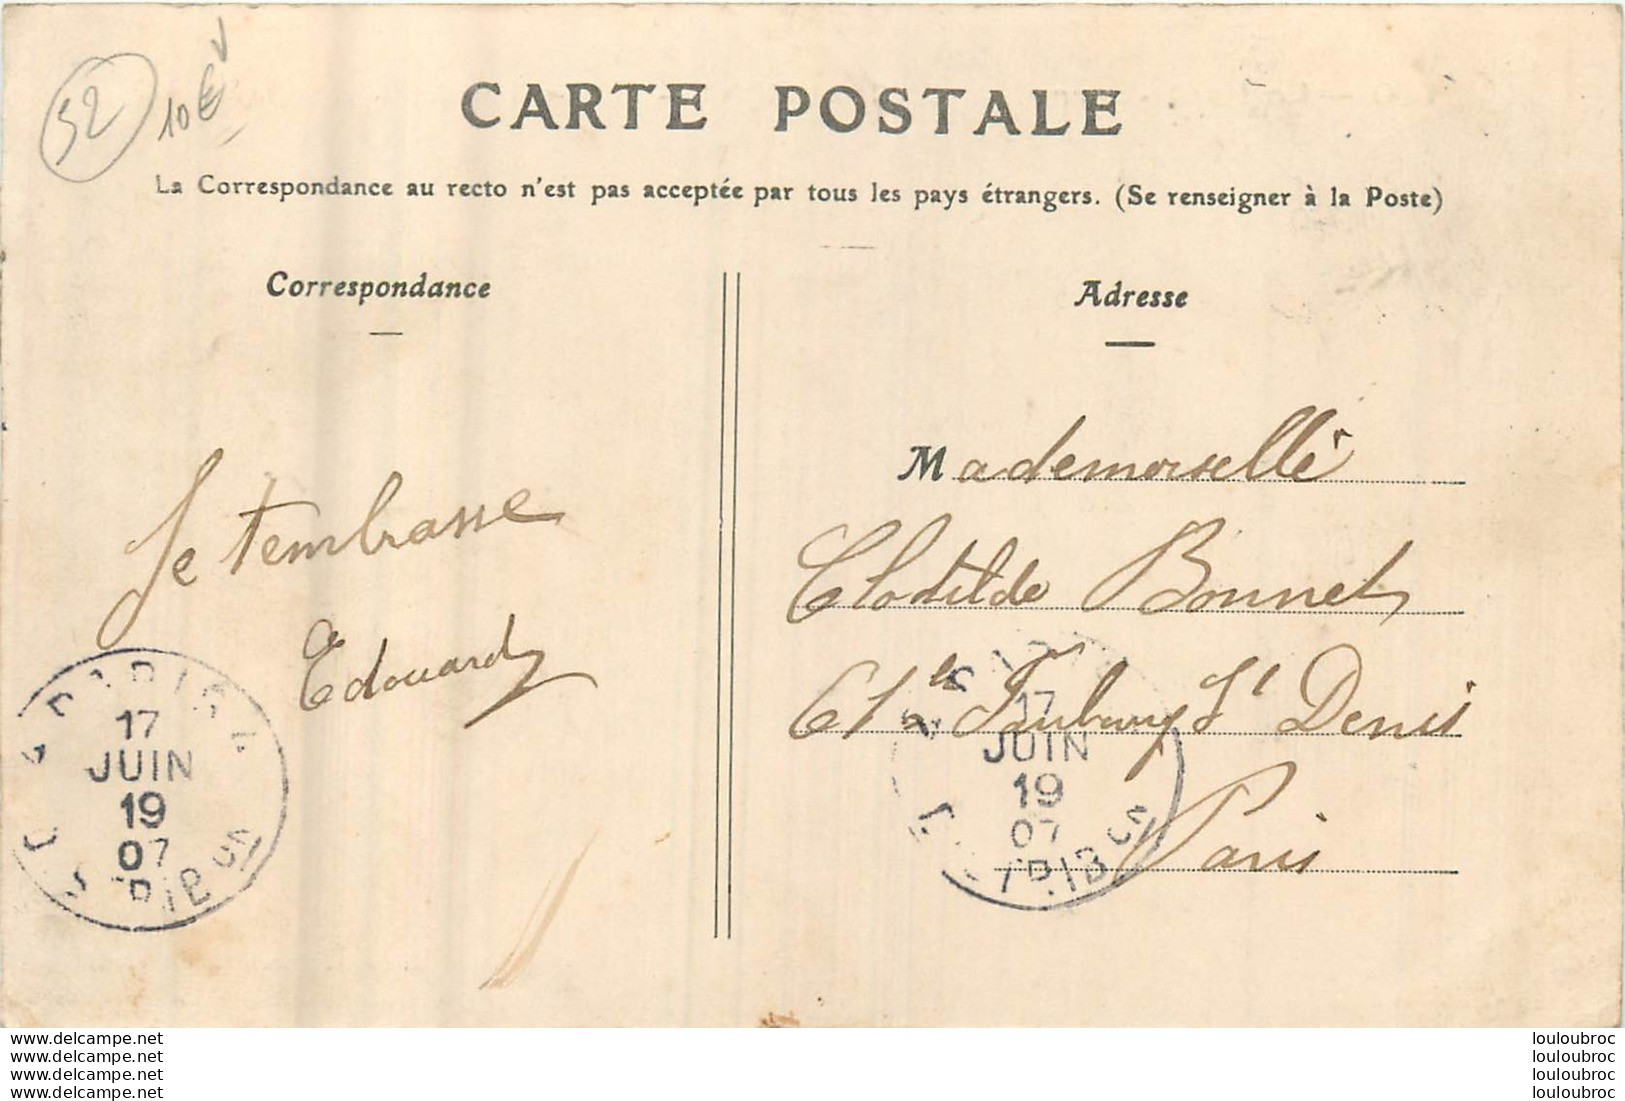 52
10€
CARTE POSTALE
La Correspondance au recto n'est pas acceptée par tous les pays étrangers. (Se renseigner à la Poste)
Correspondance
Adresse
Je t'embrasse
Edouard
Mademoiselle
Clotilde Bonnet
61 Faubourg St Denis
Paris
17
JUIN
19
07
DISTRIBUTION
17
JUIN
19
07
www.delcampe.net
www.delcampe.net
www.delcampe.net
www.delcampe.net
louloubroc
louloubroc
louloubroc
louloubroc